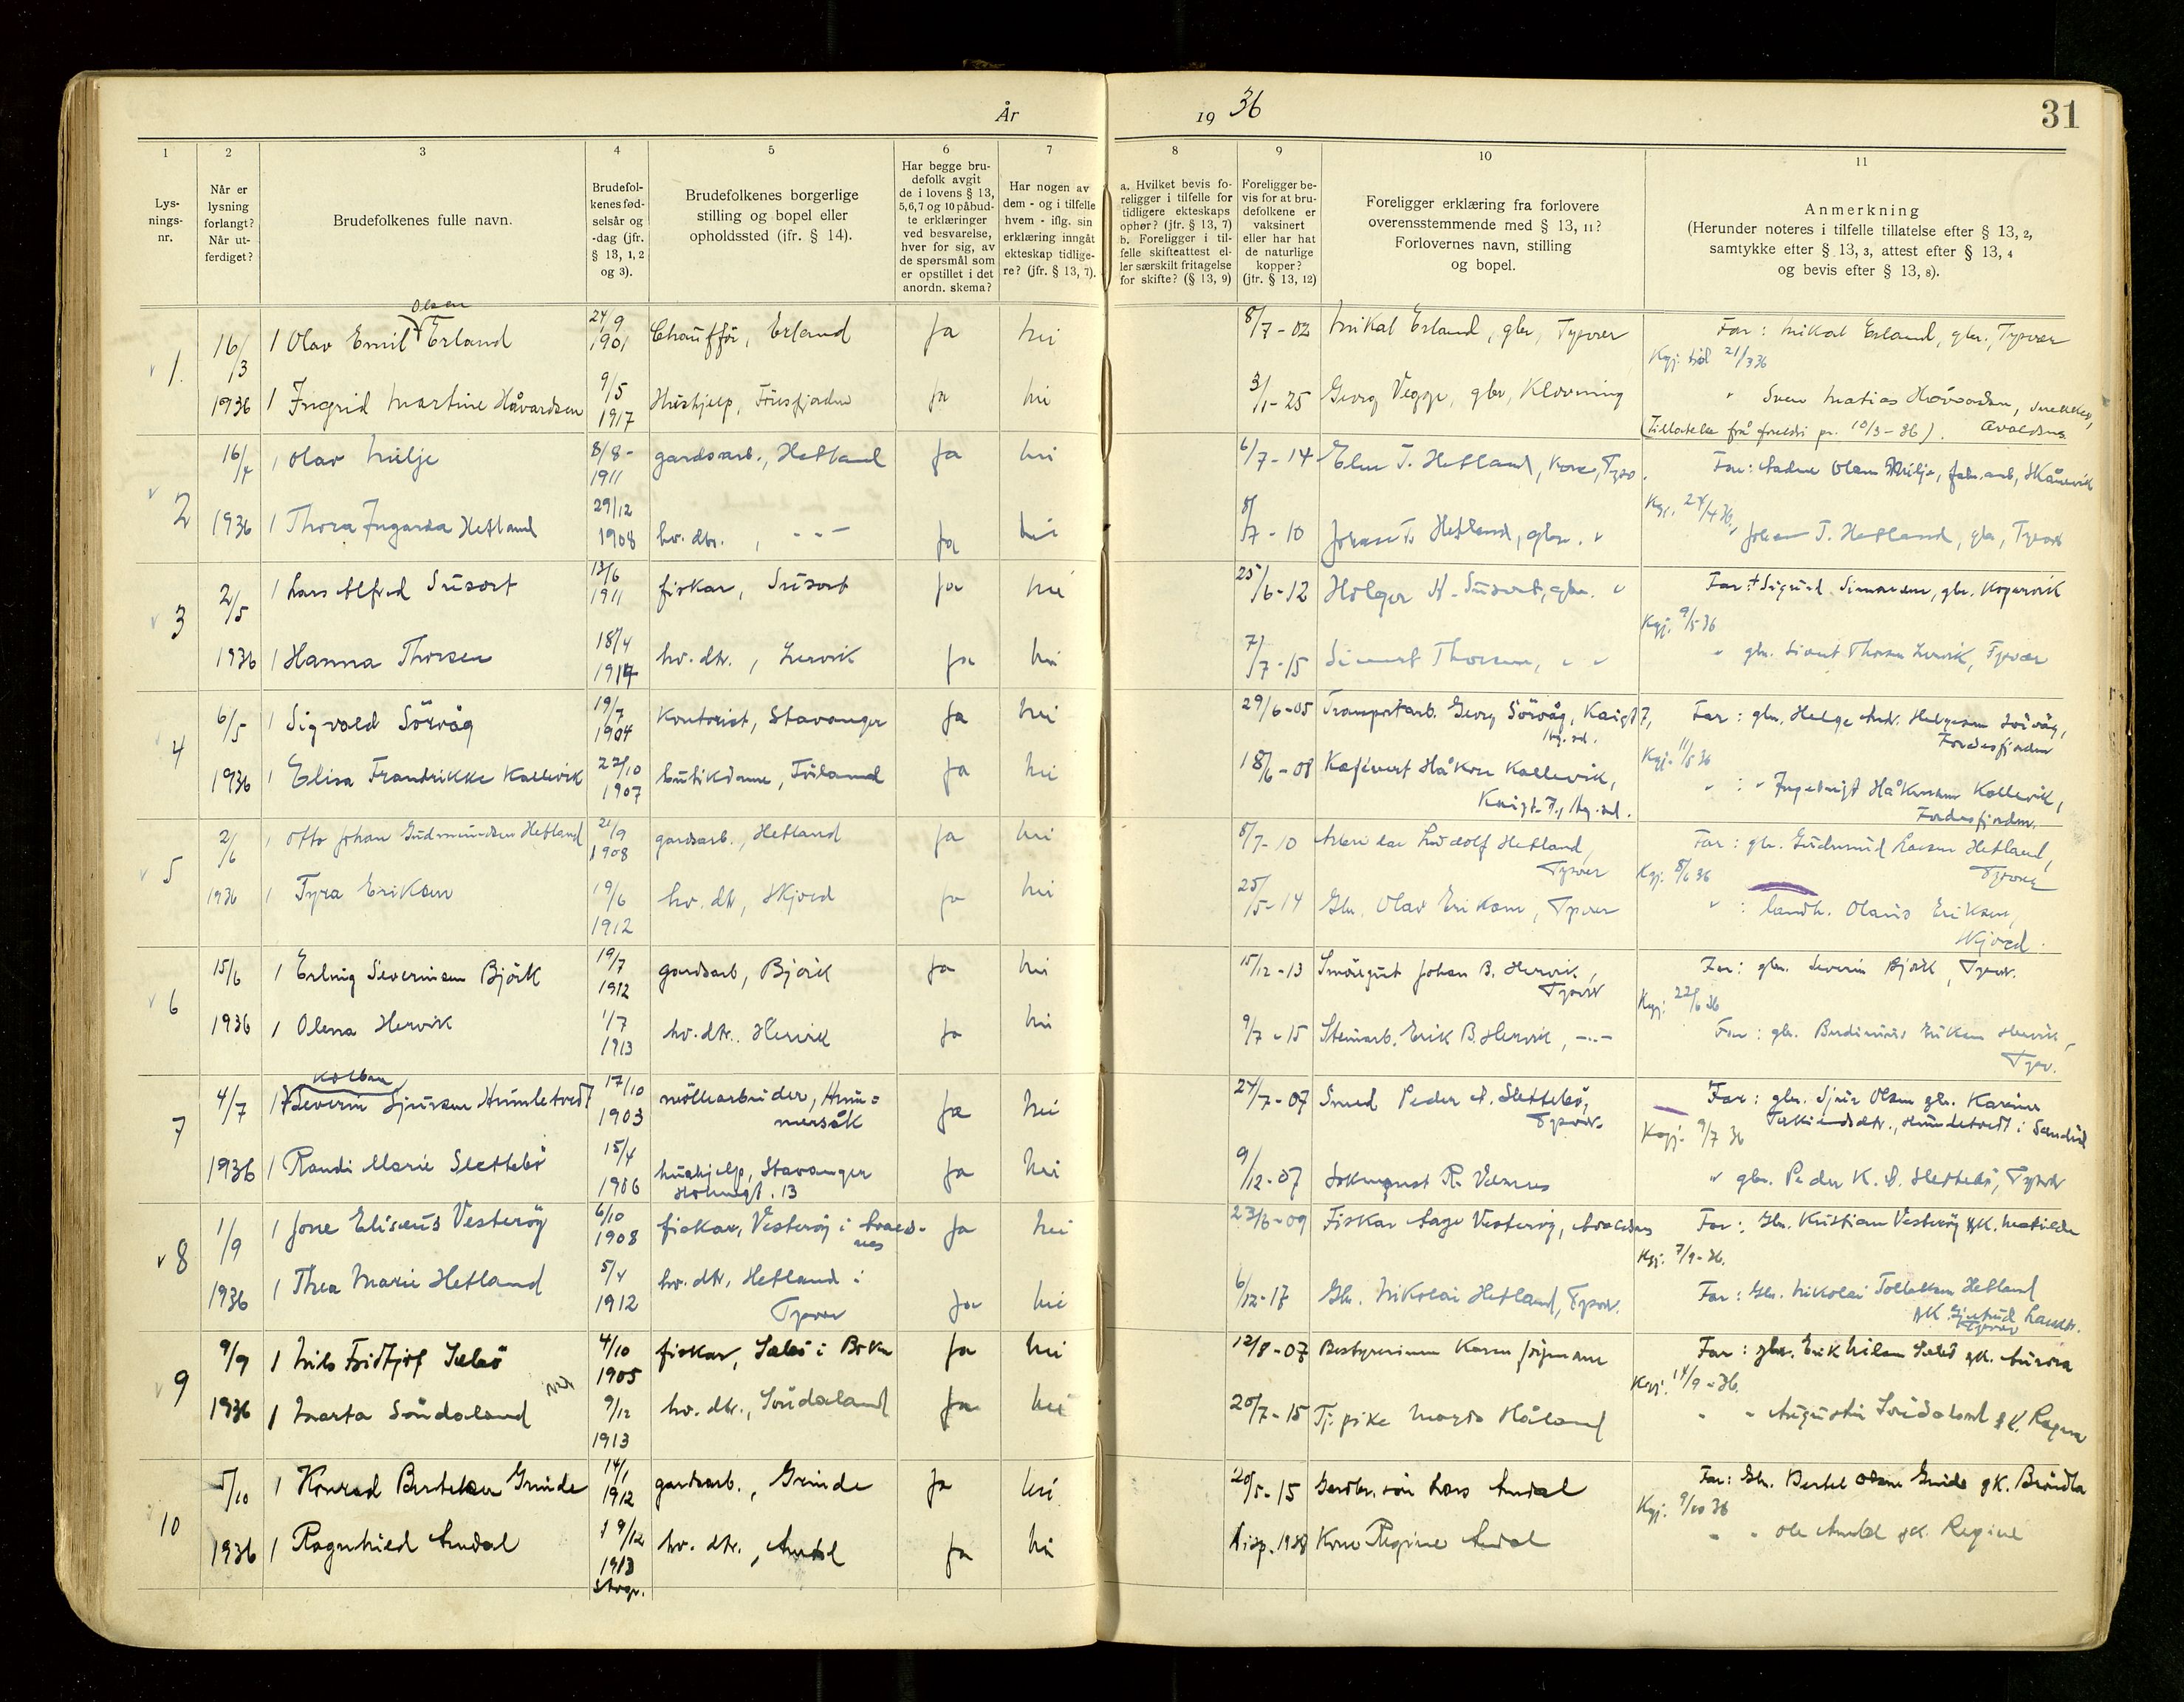 År 19 36
31
1
2
3
4
5
6
7
8
9
10
11
Lys-
nings-
nr.
Når er
lysning
forlangt?
Når ut-
ferdiget?
Brudefolkenes fulle navn.
Brudefol-
kenes fød-
selsår og
-dag (jfr.
§ 13, 1, 2
og 3).
Brudefolkenes borgerlige
stilling og bopel eller
opholdssted (jfr. § 14).
Har begge bru-
defolk avgit
de i lovens § 13,
5, 6, 7 og 10 påbud-
te erklæringer
ved besvarelse,
hver for sig, av
de spørsmål som
er opstillet i det
anordn. skema?
Har nogen av
dem - og i tilfelle
hvem - iflg. sin
erklæring inngåt
ekteskap tidlige-
re? (jfr. § 13, 7).
a. Hvilket bevis fo-
religger i tilfelle for
tidligere ekteskaps
ophør? (jfr. § 13, 7)
b. Foreligger i til-
felle skifteattest el-
ler særskilt fritagelse
for skifte? (§ 13, 9)
Foreligger be-
vis for at bru-
defolkene er
vaksinert
eller har hat
de naturlige
kopper?
(jfr. § 13, 12)
Foreligger erklæring fra forlovere
overensstemmende med § 13, 11?
Forlovernes navn, stilling
og bopel.
Anmerkning
(Herunder noteres i tilfelle tillatelse efter § 13, 2,
samtykke efter § 13, 3, attest efter § 13, 4
og bevis efter § 13, 8).
1. 16/3 1 Olav Emil Olsen Erland 24/9 1901 Chauffør, Erland Ja Nei 8/7-02 Mikal Erland, gbr, Tysvær Far: Mikal Erland, gbr., Tysvær
Kgj. 21/3 36
1936 1 Ingrid Martine Håvardsen 9/5 1917 Hushjelp, Ja Nei 3/1-25 Georg Veggje, gbr, Klovning " Sven Matias Håvardsen, snekker, Avaldsnes
(Tillatelse frå foreldri pr. 10/3-36).
2 16/7 1 Olav Milje 8/8- 1911 gardsarb., Hetland Ja Nei 6/7-14 T. Hetland, Far: Olsen Milje, Skånevik
Kgj. 24/4 36.
1936 1 Thora Ingarda Hetland 29/12 1908 hv. dtr., -"- Ja Nei 8/7-10 Johan T. Hetland, gbr. " Johan T. Hetland, gbr, Tysvær
3 2/5 1 Lars Alfred Susort 13/6 1911 fiskar, Susort Ja Nei 25/6-12 Holger Susort, gbr. " Far: + Sigurd Simonsen, gbr. Kopervik
Kgj. 9/5 36
1936 1 Hanna Thorsen 18/4 1914 hv. dtr., Lervik Ja Nei 7/7-15 Sivert Thorsen, " " " gbr. Sivert Thorsen Lervik, Tysvær
4 6/5 1 Sigvald Sörvåg 19/7 1904 Kontorist, Stavanger Ja Nei 29/6-05 Transportarb. Georg Sörvåg, Far: gbr. Helge Andr. Helgesen Sörvåg, Fördesfjorden
Kgj. 11/5 36
1936 1 Elisa Fredrikke Kallevik 22/10 1907 butikdame, Ja Nei 18/6-08 Håkon Kallevik, " : " Ingebrigt Håkonsen Kallevik, Fördesfjorden.
5 2/6 1 Otto Johan Gudmundsen Hetland 21/9 1908 gardsarb., Hetland Ja Nei 8/7-10 Arbeider Ludolf Hetland, Tysvær Far: gbr. Gudmund Larsen Hetland, Tysvær
Kgj. 8/6 36
1936 1 Tyra Eriksen 19/6 1912 hv. dtr, Skjold Ja Nei 25/5-14 Gbr. Olav Eriksen, Tysvær " : landh. Olaus Eriksen, Skjold.
6 15/6 1 Erling Severinsen Björk 19/7 1912 gardsarb, Björk Ja Nei 15/12-13 Smörgut Johan B. Hervik, Tysvær Far: gbr. Severin Björk, Tysvær.
Kgj: 22/6 36
1936 1 Olena Hervik 1/7 1913 hv. dtr. Hervik Ja Nei 9/7-15 Steinarb. Erik B. Hervik, -"- Far: gbr. Eriksen Hervik, Tysv.
7 4/7 1 Severin Sjursen Humletvedt 17/10 1903 möllearbeider, Hummersåk Ja Nei 24/7-07 Smed Peder Slettebö, Tysvær. Far: gbr. Sjur Olsen gk. Karine
Humletvedt i Sandeid
Kgj. 9/7 36
1936 1 Randi Marie Slettebö 15/4 1906 hushjelp, Stavanger 13 Ja Nei 9/12-07 R. Velsnes " gbr. Peder K. Slettebö, Tysvær
8 1/9 1 Jone Eliseus Vesteröy 6/10 1908 fiskar, Vesteröy i Avaldsnes Ja Nei 23/6-09 Fiskar Aage Vesteröy, Avaldsnes Far: Gbr. Kristian Vesteröy gk. Matilde
Kgj. 7/9-36.
1936 1 Thea Marie Hetland 5/4 1912 hv. dtr, Hetland i Tysvær Ja Nei 6/12-17 Gbr. Nikolai Hetland, Tysvær. Far: Gbr. Nikolai Tollaksen Hetland
gk. Gjertrud Larsdtr. Tysvær
9 9/9 1 Nils Fridtjof Sæbö 4/10 1905 fiskar, Sæbö i Bokn Ja Nei 12/8-07 Bestyrerinne Karen Far: gbr. Erik Nilsen Sæbö gk. Aurora
Kgj. 14/9-36.
1936 1 Marta Söndaland 9/12 1913 hv. dtr., Ja Nei 20/7-15 Tj. pike Marta Håland " " Augustin gk. Regina
10 5/10 1 Konrad Bertelsen Grinde 14/1 1912 gardsarb., Grinde Ja Nei 20/5-15 Gardbr. sön Lars Amdal Far: Gbr. Bertel Olsen Grinde gk. Bröndla
Kgj. 9/10 36
1936 1 Ragnhild Amdal 19/12 1913 Stavgr. hv. dtr., Amdal Ja Nei Kone Regine Amdal " " Ole Amdal gk. Regine